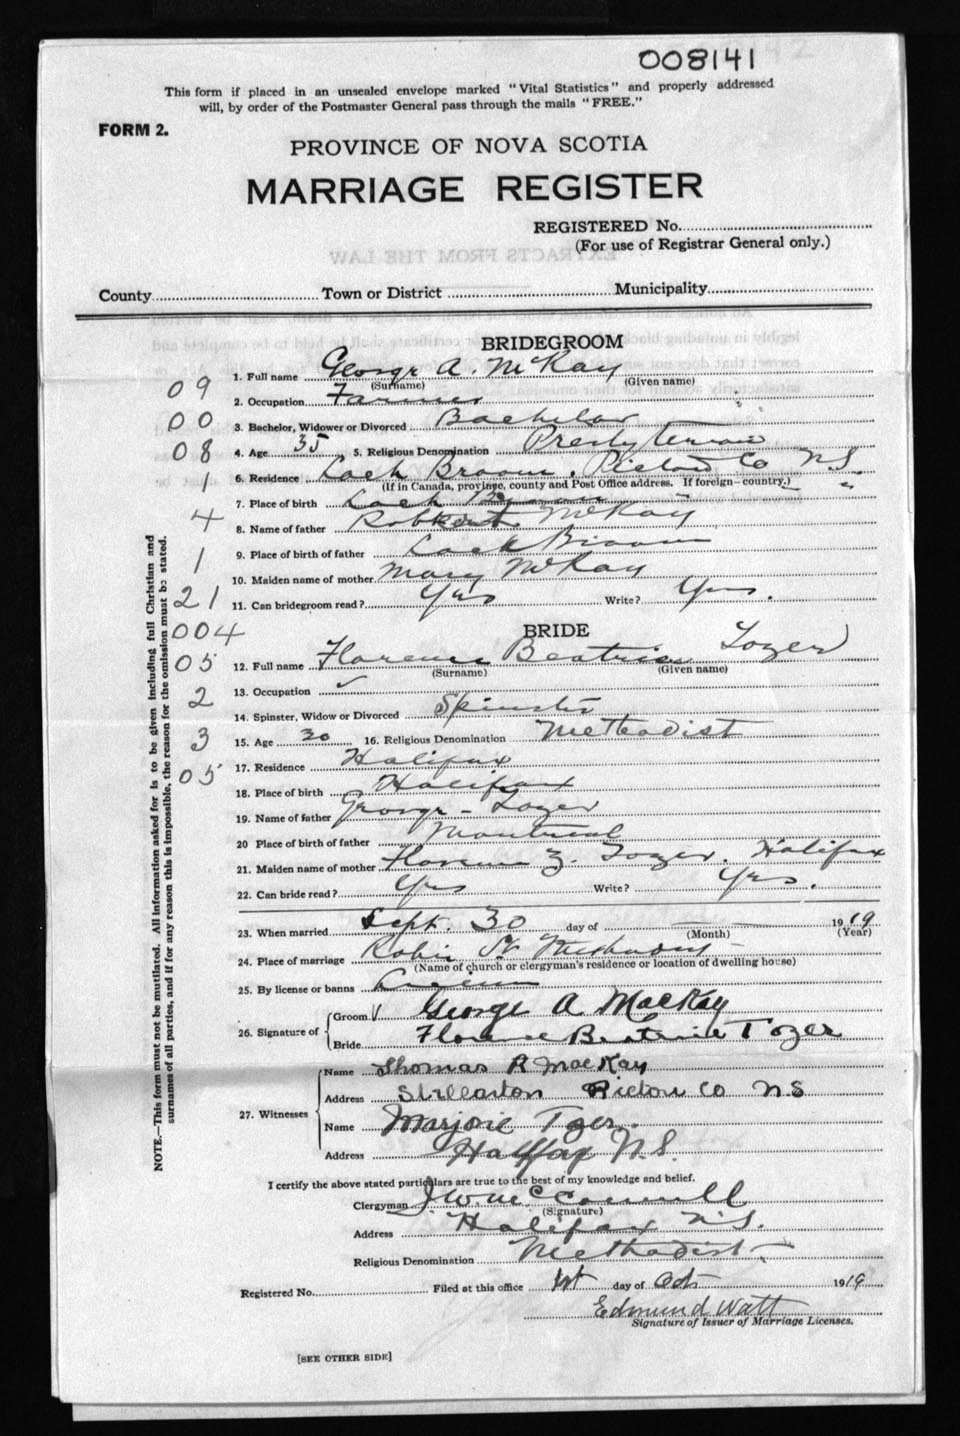 008141
This form if placed in an unsealed envelope marked "Vital Statistics" and properly addressed
will, by order of the Postmaster General pass through the mails "FREE."
FORM 2.
PROVINCE OF NOVA SCOTIA
MARRIAGE REGISTER
REGISTERED No.
(For use of Registrar General only.)
EXTRACTS FROM THE LAW
County Town or District Municipality
BRIDEGROOM
1. Full name George A. McKay
(Surname) (Given name)
09
2. Occupation Farmer
00
3. Bachelor, Widower or Divorced Bachelor
08
4. Age 35 5. Religious Denomination Presbyterian
1
6. Residence Loch Broom, Pictou Co N.S.
(If in Canada, province, county and Post Office address. If foreign—country.)
7. Place of birth Loch Broom " "
4
8. Name of father Robert McKay
1
9. Place of birth of father Loch Broom
10. Maiden name of mother Mary McKay
21
11. Can bridegroom read? Yes Write? Yes.
004
BRIDE
05
12. Full name Florence Beatrice Tozer
(Surname) (Given name)
2
13. Occupation ✓
14. Spinster, Widow or Divorced Spinster
3
15. Age 30 16. Religious Denomination Methodist
05
17. Residence Halifax
18. Place of birth Halifax
19. Name of father George Tozer
20 Place of birth of father Montreal
21. Maiden name of mother Florence Z. Tozer. Halifax
22. Can bride read? Yes Write? Yes.
23. When married Sept. 30 day of 1919
(Month) (Year)
24. Place of marriage Robie St Methodist
(Name of church or clergyman's residence or location of dwelling house)
25. By license or banns License
26. Signature of Groom George A MacKay
Bride Florence Beatrice Tozer
27. Witnesses
Name Thomas R MacKay
Address Stellarton Pictou Co NS
Name Marjorie Tozer.
Address Halifax N.S.
I certify the above stated particulars are true to the best of my knowledge and belief.
Clergyman J. W. McConnell
(Signature)
Address Halifax N.S.
Religious Denomination Methodist
Registered No. Filed at this office 1st day of Oct 1919
Edmund Watt
Signature of Issuer of Marriage Licenses.
[SEE OTHER SIDE]
NOTE.—This form must not be mutilated. All information asked for is to be given including full Christian and
surnames of all parties, and if for any reason this is impossible, the reason for the omission must be stated.